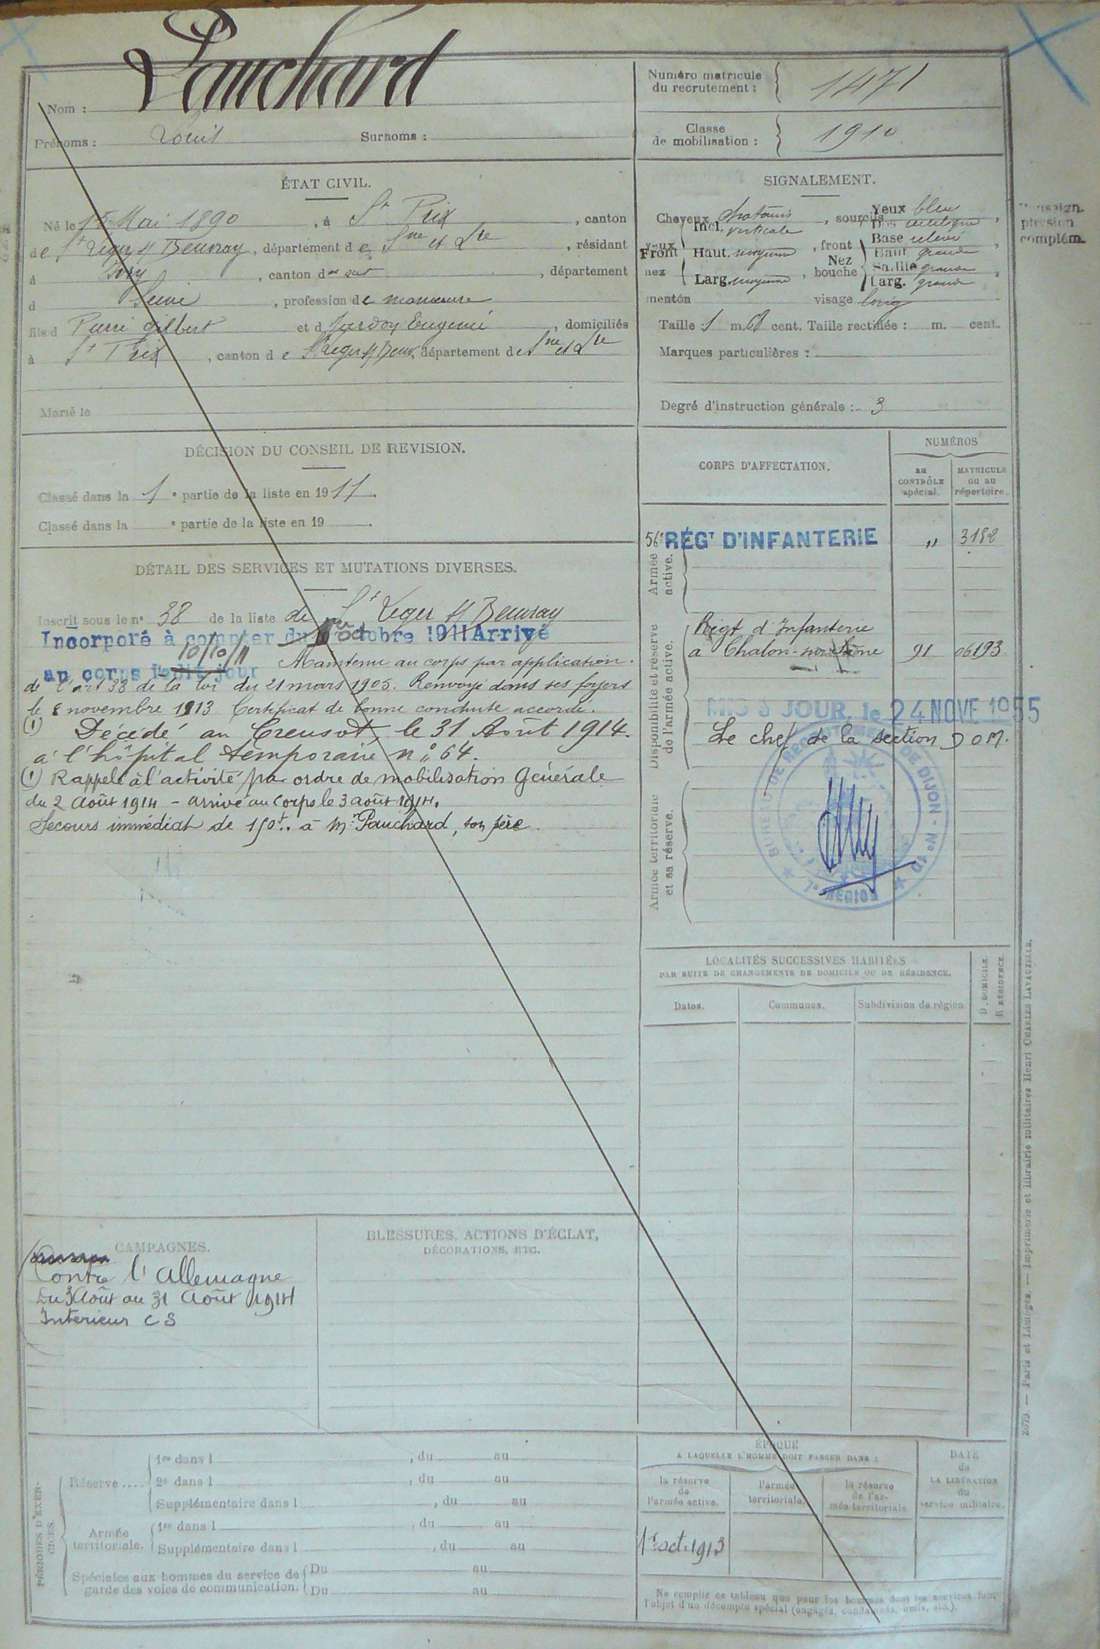 Nom : Pauchard
Prénoms : Louis Surnoms :
Numéro matricule du recrutement : 1471
Classe de mobilisation : 1910
ÉTAT CIVIL.
Né le 15 Mai 1890, à St Prix, canton
de St Léger s/ Beuvray, département de Sne et Lre, résidant
à Ivry, canton du sud, département
d Seine, profession de manœuvre
fils d Pierre Gilbert et d Eugénie, domiciliés
à St Prix, canton de St Léger s/ Beuv., département de Sne et Lre
Marié le
SIGNALEMENT.
Cheveux chatains, sourcils
Yeux bleu
Front Incl. verticale
Haut. moyenne
Larg. moyenne
front
bouche
Nez Dos rectiligne
Base relevé
Haut grande
Saillie grande
Larg. grande
menton visage long
Taille 1 m. 68 cent. Taille rectifiée : m. cent.
Marques particulières :
Degré d'instruction générale : 3
Renseign. physion. complém.
DÉCISION DU CONSEIL DE REVISION.
Classé dans la 1e partie de la liste en 1911.
Classé dans la e partie de la liste en 19 .
CORPS D'AFFECTATION.
NUMÉROS
au CONTRÔLE spécial.
MATRICULE ou au répertoire.
Armée active.
56e RÉGT D'INFANTERIE " 3182
Disponibilité et réserve de l'armée active.
Régt d'Infanterie
à Chalon-sur-Saône 91 06193
MIS à JOUR, le 24 NOVE 1955
Le chef de la section D O M.
BUREAU DE RECRUTEMENT DE DIJON - No 10
RÉGION
Armée territoriale et sa réserve.
DÉTAIL DES SERVICES ET MUTATIONS DIVERSES.
Inscrit sous le no 38 de la liste de St Leger s/ Beuvray
Incorporé à compter du octobre 1911 Arrivé
10/10/11
au corps ledit jour Maintenu au corps par application.
de l'art 33 de la loi du 21 mars 1905. Renvoyé dans ses foyers
le 8 novembre 1913 Certificat de bonne conduite accordé.
(1) Décédé au Creusot, le 31 Août 1914.
à l'hôpital temporaire no 64.
(1) Rappelé à l'activité par ordre de mobilisation Générale
du 2 Août 1914 - arrivé au Corps le 3 août 1914.
Secours immédiat de 150f. à Mr Pauchard, son père.
LOCALITÉS SUCCESSIVES HABITÉES
PAR SUITE DE CHANGEMENTS DE DOMICILE OU DE RÉSIDENCE.
Dates. Communes. Subdivision de région. D. DOMICILE. R. RÉSIDENCE.
CAMPAGNES.
Contre l'Allemagne
Du 3 Août au 31 Août 1914
Intérieur C S
BLESSURES, ACTIONS D'ÉCLAT,
DÉCORATIONS, ETC.
PÉRIODES D'EXERCICES.
Réserve .... 1re dans l , du au
2e dans l , du au
Supplémentaire dans l , du au
Armée territoriale. 1re dans l , du au
Supplémentaire dans l , du au
Spéciales aux hommes du service de garde des voies de communication. Du au
Du au
ÉPOQUE
A LAQUELLE L'HOMME DOIT PASSER DANS :
la réserve de l'armée active.
l'armée territoriale.
la réserve de l'armée territoriale.
DATE de LA LIBÉRATION du service militaire.
1er oct. 1913
Ne remplir ce tableau que pour les hommes dont les services font
l'objet d'un décompte spécial (engagés, condamnés, omis, etc.).
2079. — Paris et Limoges. — Imprimerie et librairie militaires Henri CHARLES-LAVAUZELLE.